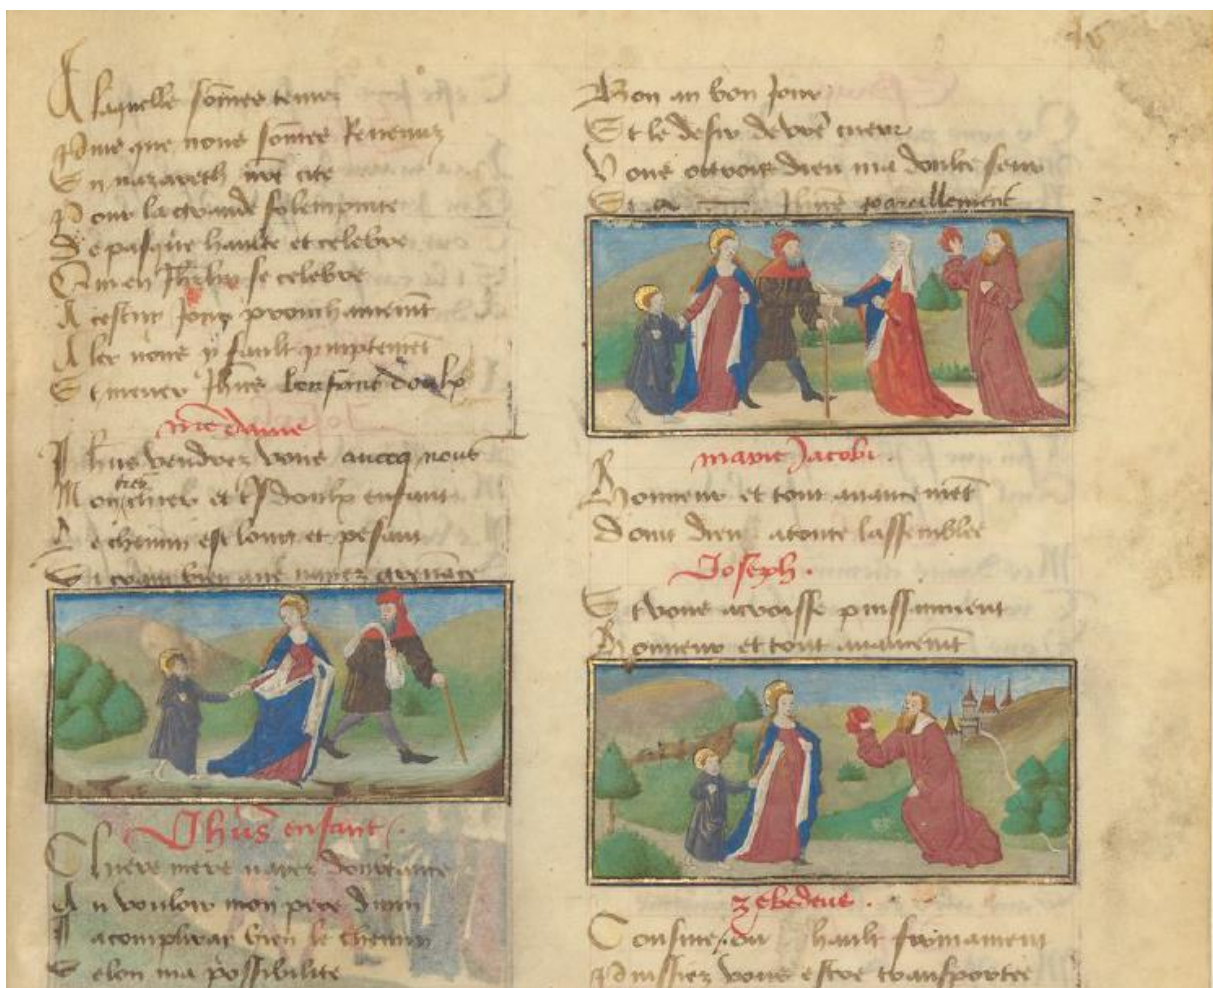 A laquelle so͞mes tenus
Puis que nous so͞mes Revenuz
En nazareth n͞re cite
Pour la grande solempnite
De pasque haulte et celebre
Qui en Jh͞rlm se celebre
A cestui Jour prouchainem͞t
Aler nous y fault promptem͞t
Et mener Jh͞us lenfant doulx
n͞re dame
Jh͞us vendrez vous avecq nous
Mon treschier et tsdoulx enfant
Le chemin est long et pesant
Jh͞us enfant
Chiere mere nayez doubtance
Au vouloir mon pere divin
Jacompliray bien le chemin
Selon ma possibilite
Bon an bon Jour
Et le desir de v͞re cueur
Vous octroie dieu ma doulce seur
Et a Jh͞us pareillement
marie Jacobi
Honneur et tout avancem͞et
Doint dieu a toute lassemblee
Joseph
Et vous acroisse puissamment
Honneur et tout avancem͞t
zebedeus
Cousine du hault firmament
Puissiez vous estre transportee